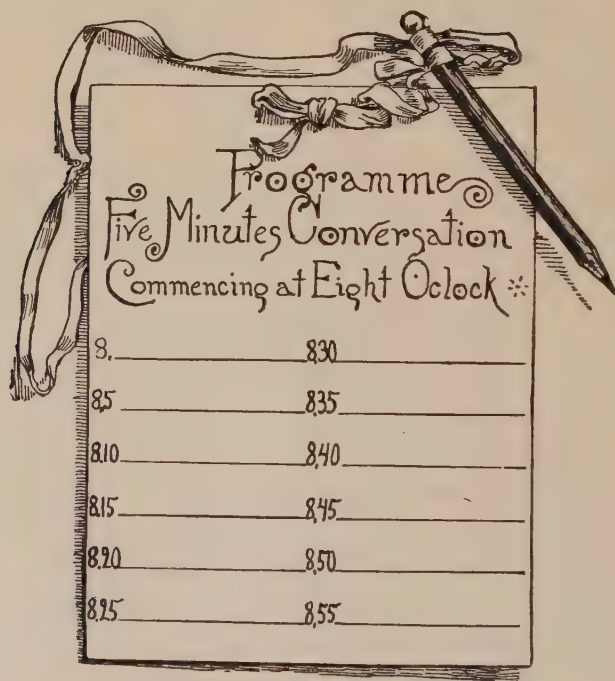 Programme
Five Minutes Conversation
Commencing at Eight Oclock
8. 8,30
8,5 8,35
8.10 8,40
8.15 8,45
8.20 8,50
8.25 8,55